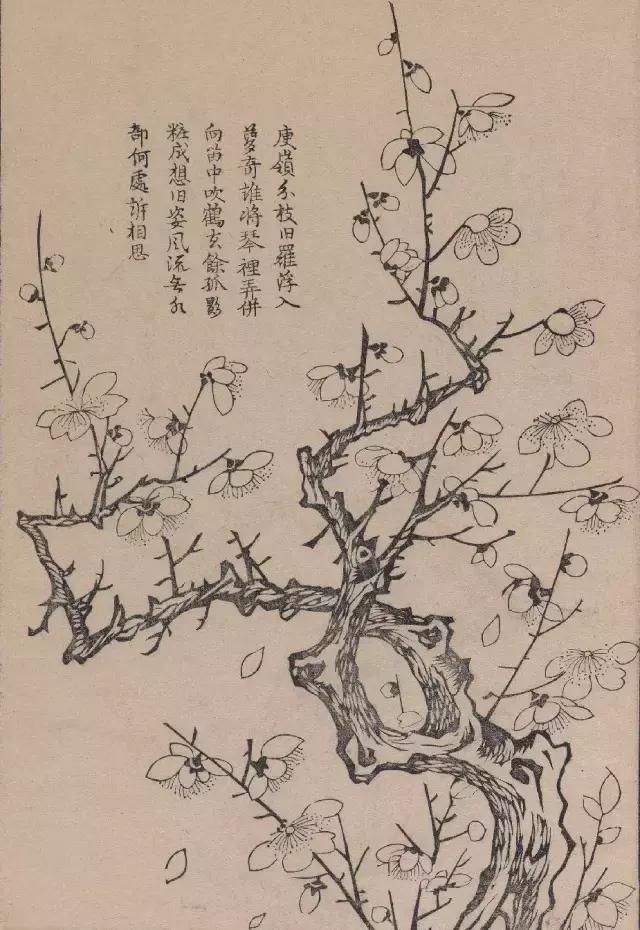 庾嶺分枝旧羅浮入
夢奇誰將琴裡弄併
向笛中吹鶴去餘孤影
粧成想旧姿風流無水
部何處訴相思